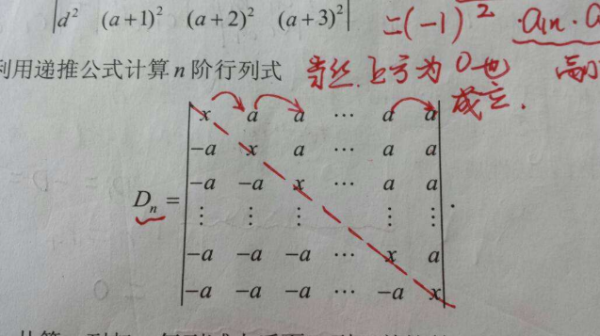 d² (a+1)² (a+2)² (a+3)²
=(-1) 2 ·a₁n·a
利用递推公式计算 n 阶行列式
为 0 也
成立.
x a a ⋯ a a
-a x a ⋯ a a
-a -a x ⋯ a a
Dₙ = ⋮ ⋮ ⋮ ⋮ ⋮ .
-a -a -a ⋯ x a
-a -a -a ⋯ -a x